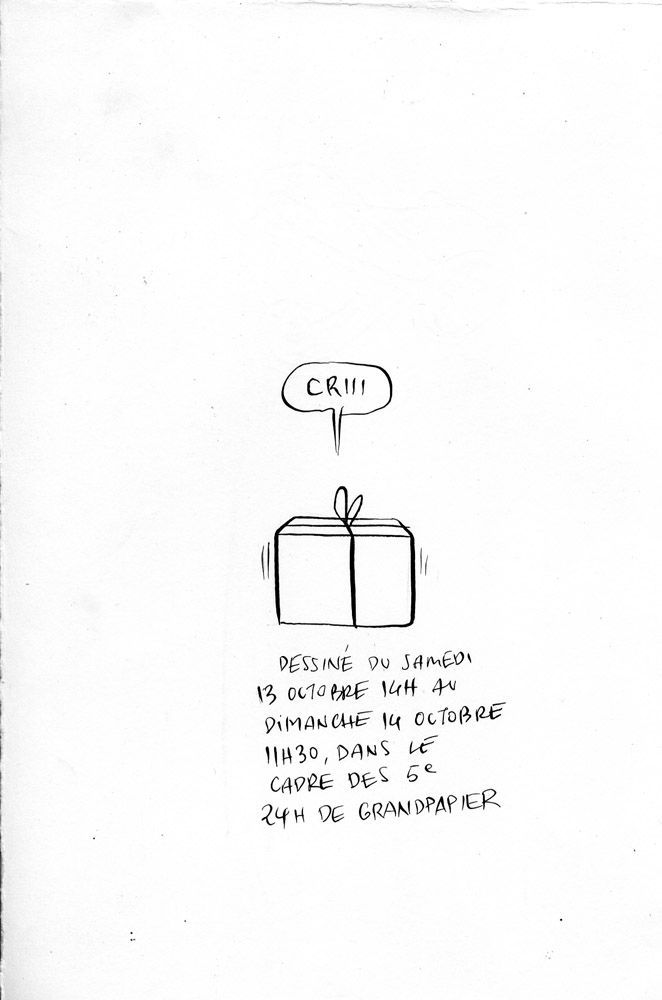 CRIII
DESSINÉ DU SAMEDI
13 OCTOBRE 14H AU
DIMANCHE 14 OCTOBRE
11H30, DANS LE
CADRE DES 5e
24H DE GRANDPAPIER